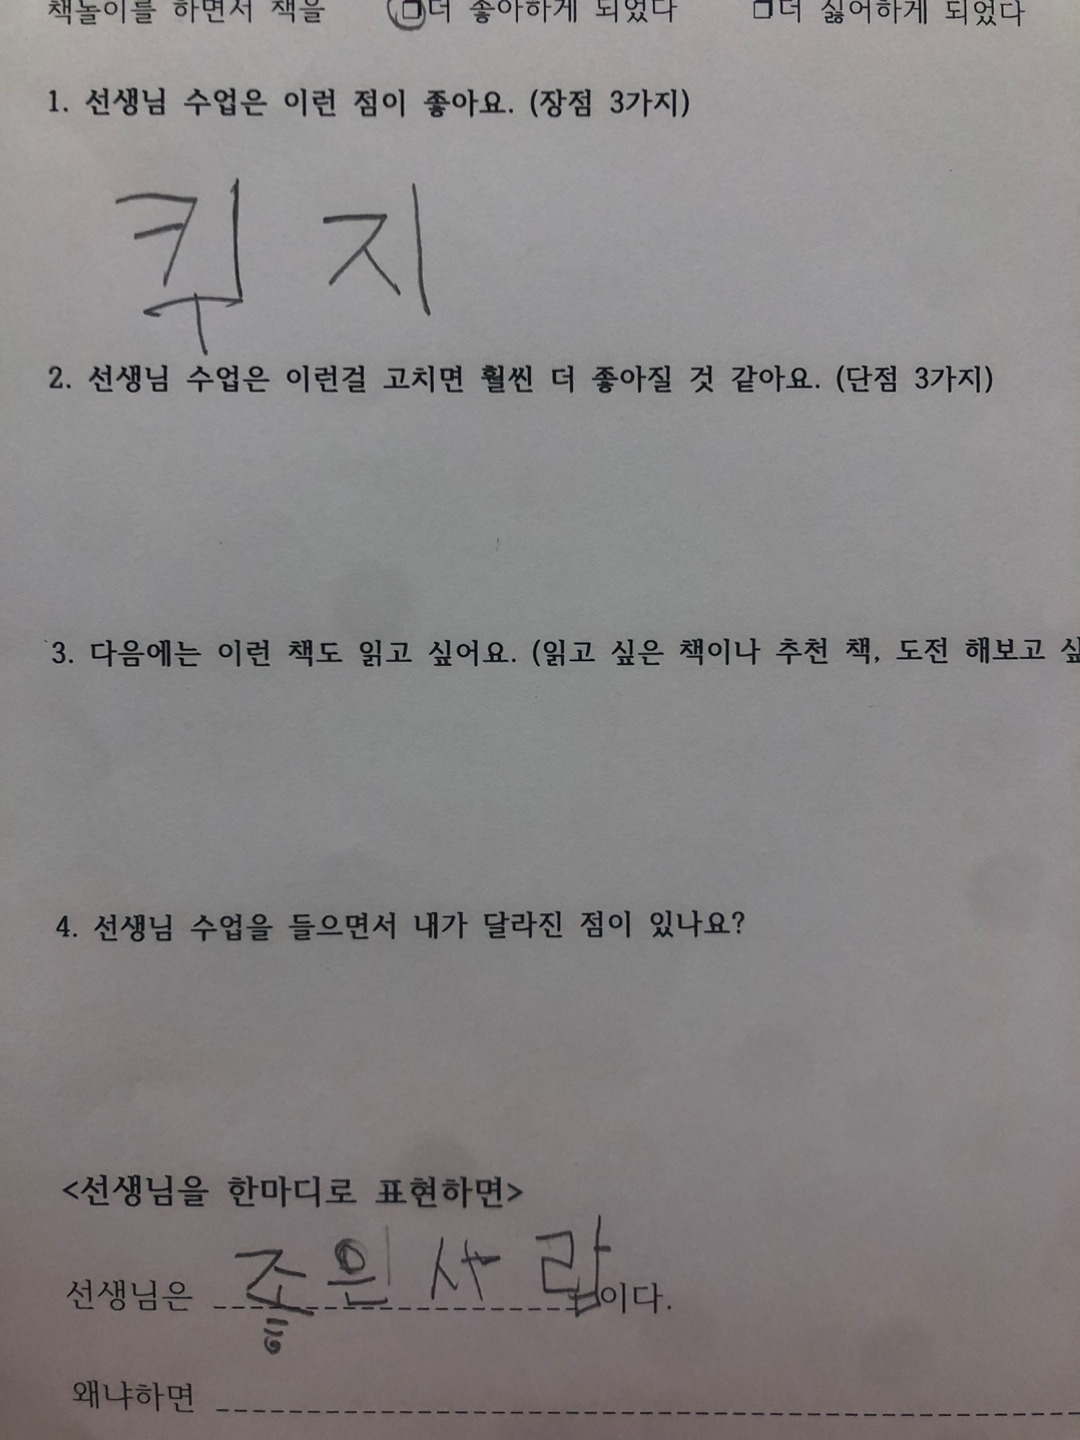 책놀이를 하면서 책을 □더 좋아하게 되었다 □더 싫어하게 되었다
1. 선생님 수업은 이런 점이 좋아요. (장점 3가지)
지
2. 선생님 수업은 이런걸 고치면 훨씬 더 좋아질 것 같아요. (단점 3가지)
3. 다음에는 이런 책도 읽고 싶어요. (읽고 싶은 책이나 추천 책, 도전 해보고 싶
4. 선생님 수업을 들으면서 내가 달라진 점이 있나요?
<선생님을 한마디로 표현하면>
선생님은 좋은사람이다.
왜냐하면